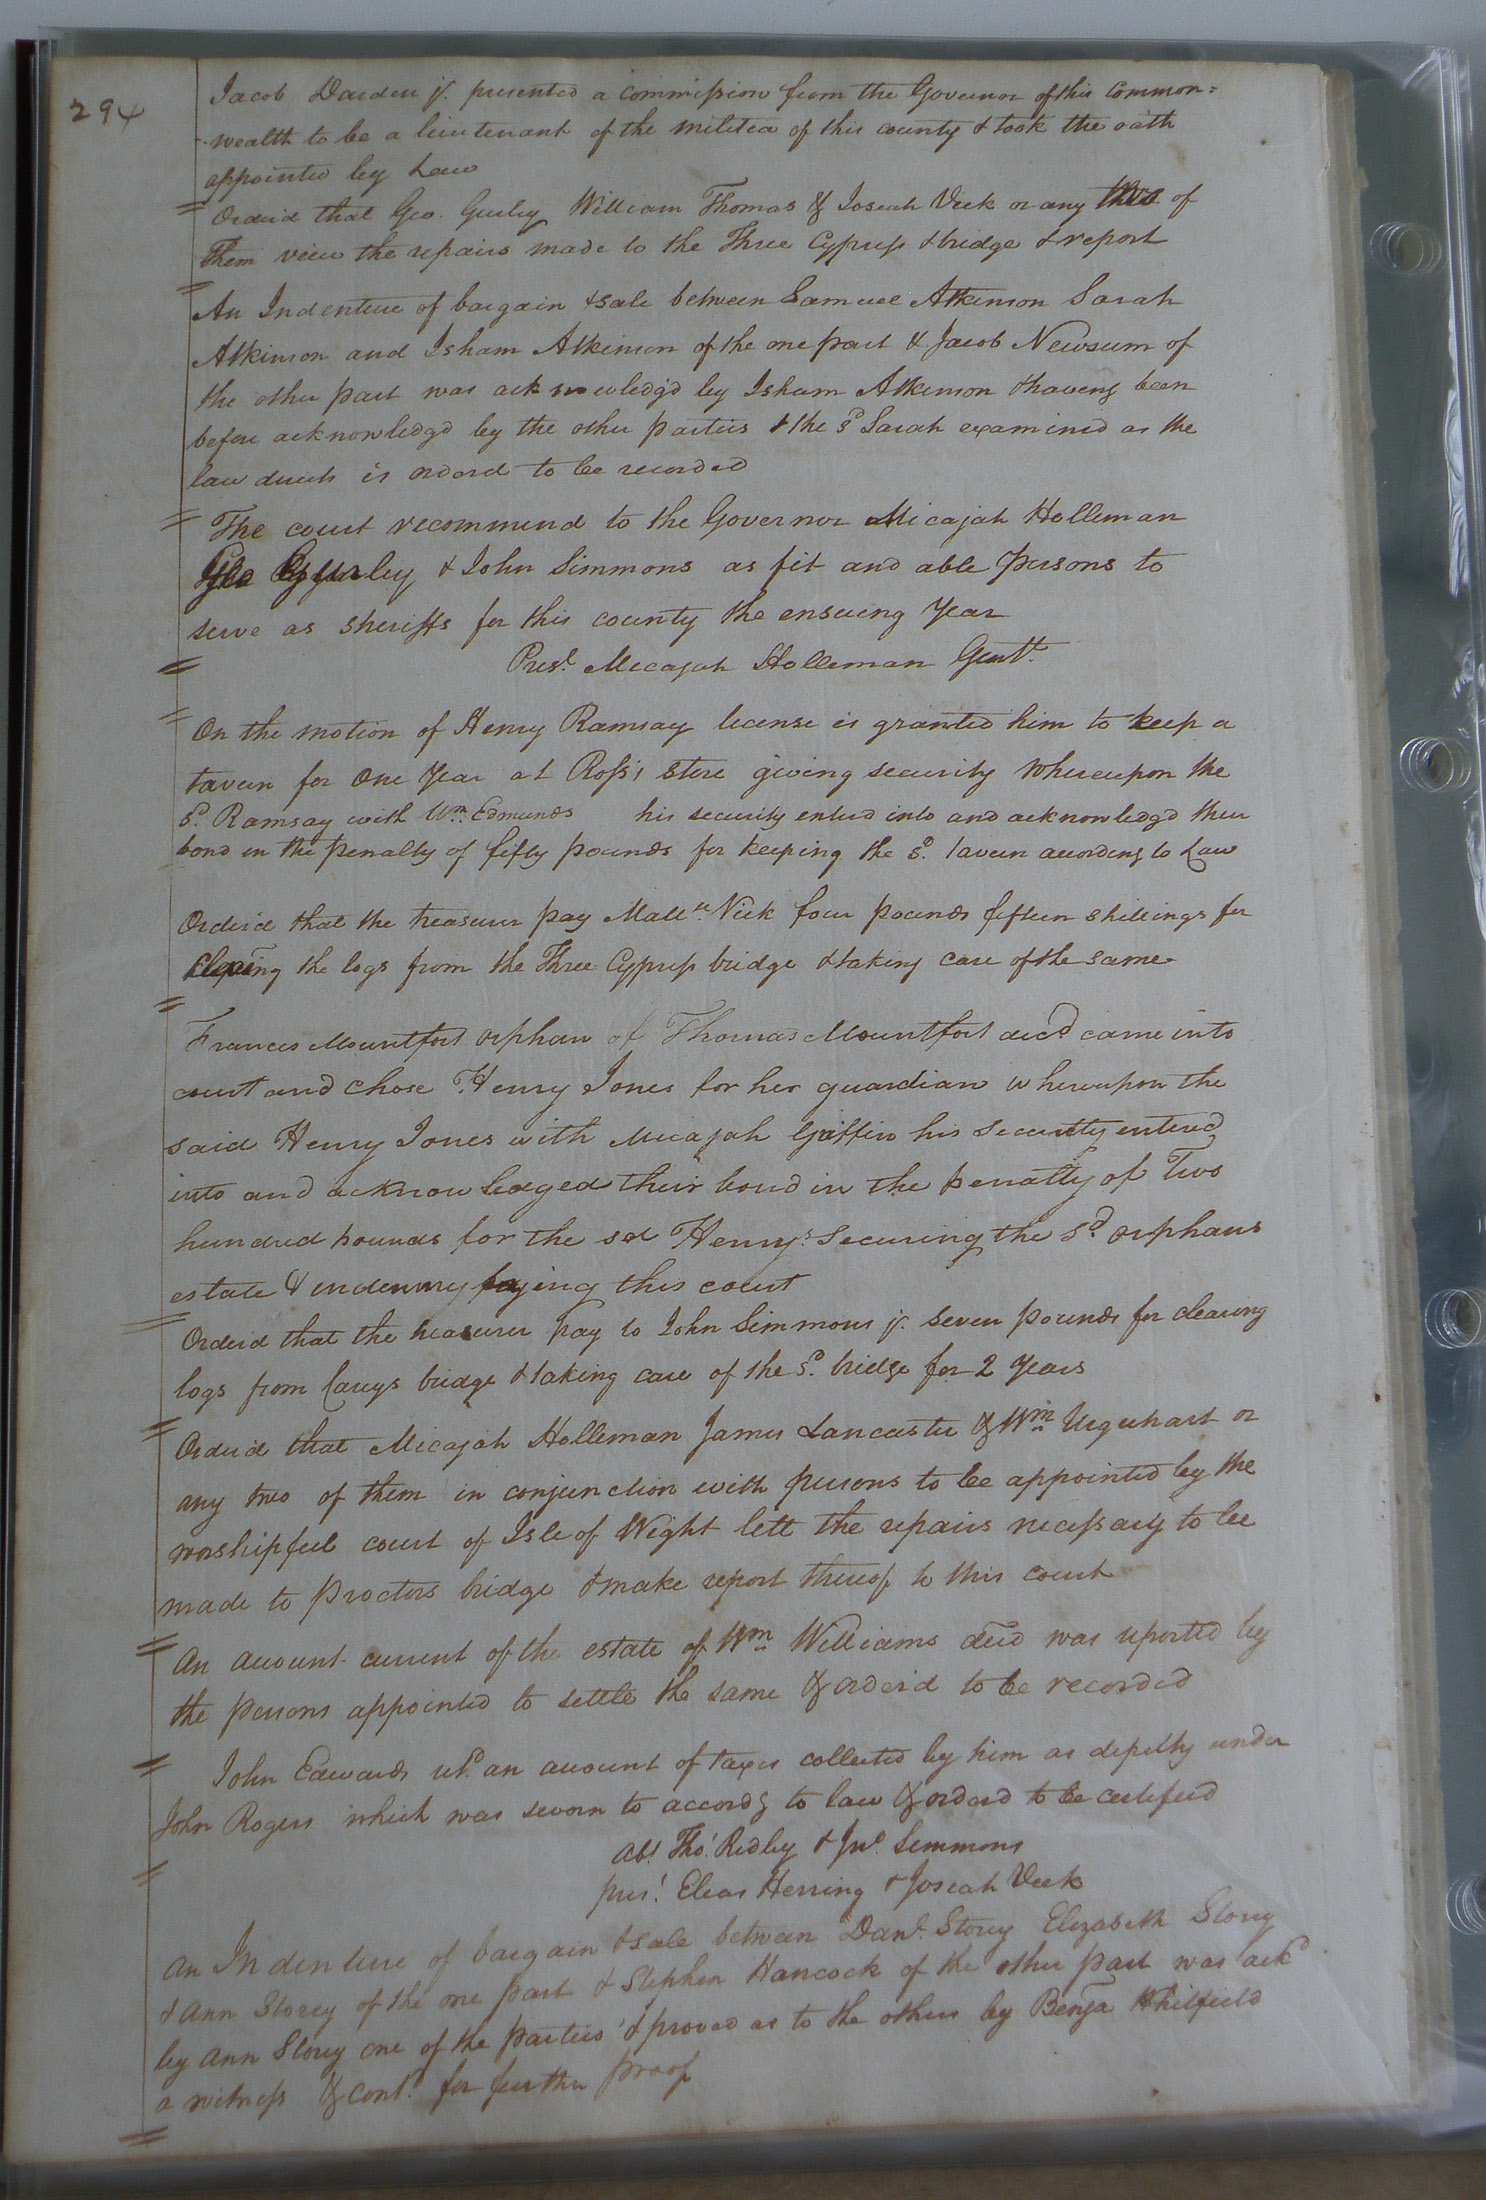 294
Jacob Darden jr. presented a commission from the Governor of this common=
-wealth to be a lieutenant of the militia of this county & took the oath
appointed by Law
Orderd that Geo. Gurley William Thomas & Josiah Vick or any two of
them view the repairs made to the Three Cypress bridge & report
An Indenture of bargain & sale between Samuel Atkinson Sarah
Atkinson and Isham Atkinson of the one part & Jacob Newsum of
the other part was acknowledg'd by Isham Atkinson & having been
before acknowledgd by the other parties & the sd. Sarah examined as the
law directs is orderd to be recorded
The court recommend to the Governor Micajah Holleman
Geo Gurley & John Simmons as fit and able persons to
serve as sheriffs for this county the ensuing Year
Prest. Micajah Holleman Gent.
On the motion of Henry Ramsay license is granted him to keep a
tavern for One Year at Ross's Store giving security whereupon the
sd. Ramsay with Wm. Edmunds his security enterd into and acknowledgd their
bond in the penalty of fifty pounds for keeping the sd. tavern according to Law
Orderd that the treasurer pay Matt. Vick four pounds fifteen shillings for
the logs from the Three Cypress bridge & taking care of the same
Frances Mountfort orphan of Thomas Mountfort decd came into
court and chose Henry Jones for her guardian whereupon the
said Henry Jones with Micajah Griffin his security entered
into and acknowledged their bond in the penalty of Two
hundred pounds for the sd Henry's Securing the sd. orphans
estate & indemnyfaying this court
Orderd that the treasurer pay to John Simmons jr. seven pounds for clearing
logs from Careys bridge & taking care of the sd. bridge for 2 Years
Orderd that Micajah Holleman James Lancaster & Wm. Urquhart or
any two of them in conjunction with persons to be appointed by the
worshipful court of Isle of Wight lett the repairs necessary to be
made to Proctors bridge & make report thereof to this court
An account current of the estate of Wm. Williams decd was reported by
the persons appointed to settle the same & orderd to be recorded
John Edwards retd. an account of taxes collected by him as depilty under
John Rogers which was sworn to accordg to law & orderd to be certified
abt. Tho. Ridley & Jno. Simmons
prest. Elias Herring & Josiah Vick
An Indenture of bargain & sale between Danl. Story Elizabeth Story
& Ann Storey of the one part & Stephen Hancock of the other part was ackd
by Ann Story one of the parties & proved as to the others by Benja Whitfield
a witness & contd. for further proof